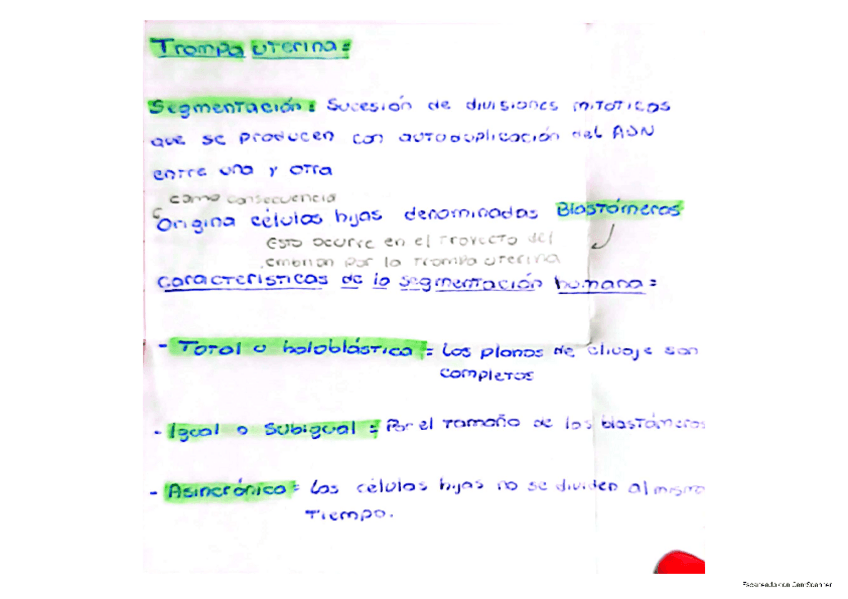 Trompa uterina:
Segmentación: Sucesión de divisiones mitoticas
que se producen con autoduplicación del ADN
entre una y otra
como consecuencia
Origina células hijas denominadas Blastómeros
Esto ocurre en el trayecto del
embrion por la trompa uterina
Caracteristicas de la segmentación humana:
- Total u holoblástica: Los planos de clivaje son
completos
- Igual o Subigual: Por el tamaño de los blastómeros
- Asincrónica: Las células hijas no se dividen al mismo
tiempo.
Escaneado con CamScanner